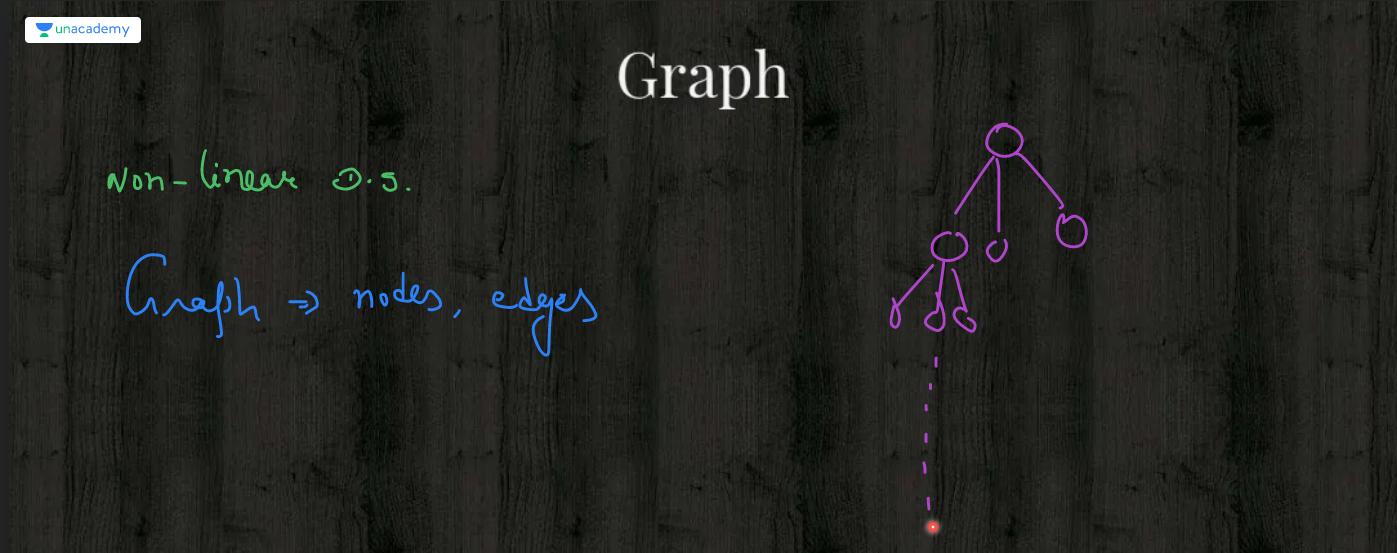 unacademy
Graph
Non-linear D.S.
Graph → nodes, edges